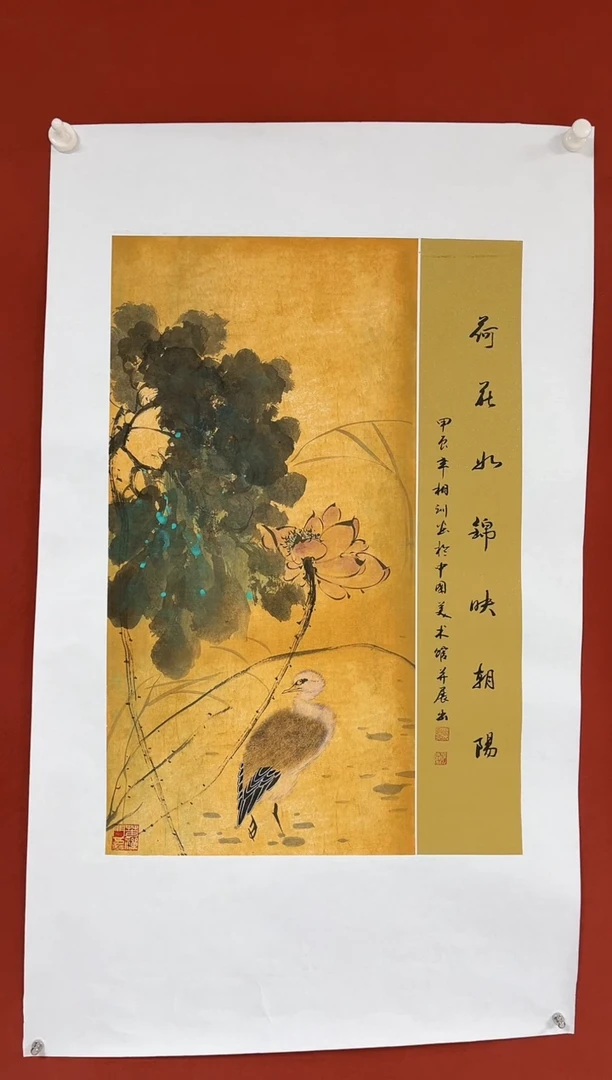 荷花如锦映朝陽
甲辰年相训画於中国美术馆并展出